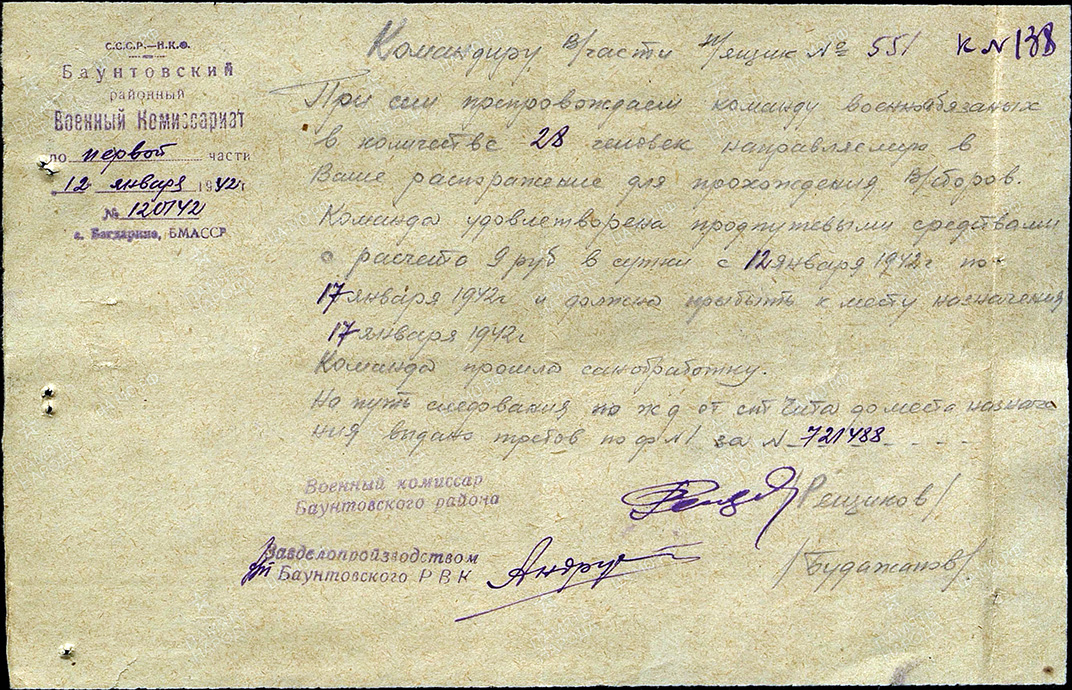 С.С.С.Р.—Н.К.О.
Баунтовский
районный
Военный Комиссариат
по первой части
12 января 1942г
№ 120142
с. Багдарино, БМАССР
Командиру в/части п/ящик № 551 К N 138
При сем препровождаем команду военнообязаных
в количестве 28 человек направляемую в
Ваше распоражение для прохождения в/сборов.
Команда удовлетворена продпутевыми средствами
с расчета 9 руб в сутки с 12 января 1942г по
17 января 1942г и должна прибыть к месту назначения
17 января 1942г
Команда прошла санобработку.
На путь следования по жд от ст Чита до места назначе
ния выдано требов по ф N1 за N 721488
Военный комиссар
Баунтовского района
/Рещиков/
Завделопроизводством
Баунтовского РВК
/Будажапов/